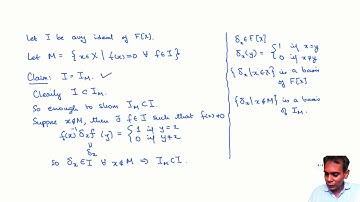 Let I be any ideal of F[X].
Let M = { x∈X | f(x)=0 ∀ f∈I }
Claim: I = I_M. ✓
Clearly I ⊂ I_M.
So enough to show I_M ⊂ I.
Suppose x∉M, then ∃ f∈I such that f(x)≠0
f(x)⁻¹ δ_x f (y) = { 1 if y=x
0 if y≠x
δ_x
So δ_x∈I ∀ x∉M ⇒ I_M⊂I.
δ_x ∈ F[X]
δ_x(y) = { 1 if x=y
0 if x≠y
{ δ_x | x∈X } is a basis
of F[X]
{ δ_x | x∉M } is a basis
of I_M.